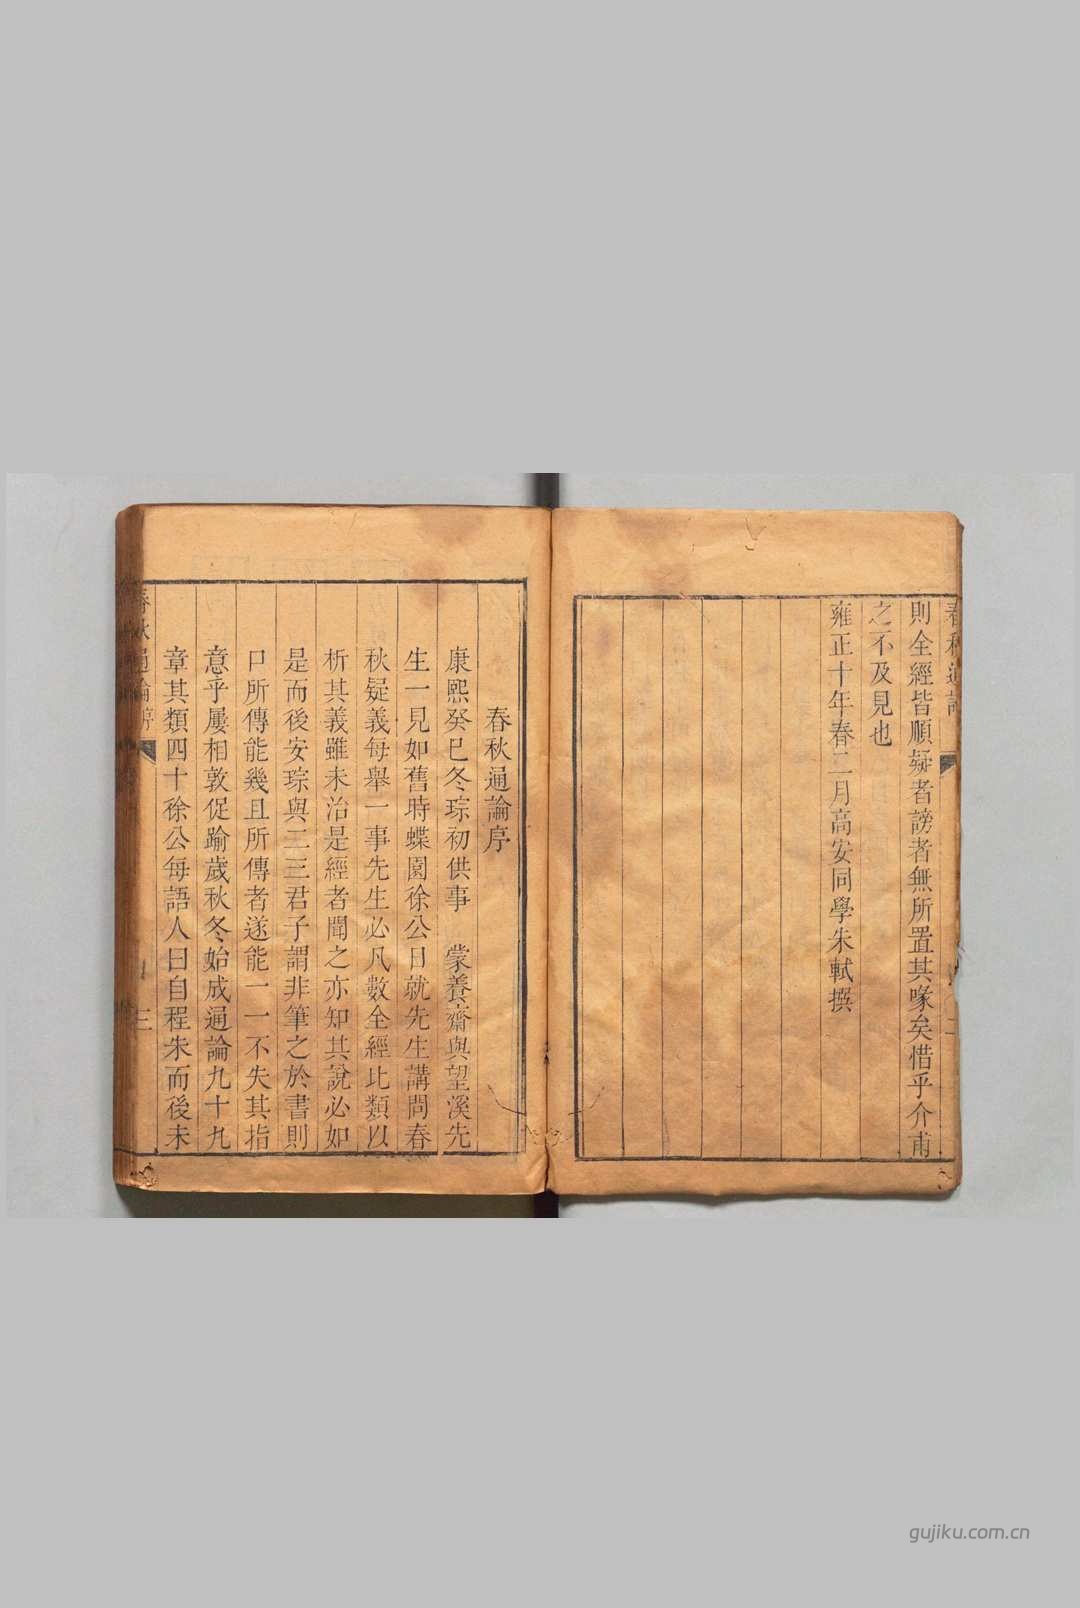 則全經皆順疑者謗者無所置其喙矣惜乎介甫
之不及見也
雍正十年春二月高安同學朱軾撰
春秋通論序
康熙癸巳冬琮初供事　蒙養齋與望溪先
生一見如舊時蝶園徐公日就先生講問春
秋疑義每舉一事先生必凡數全經比類以
析其義雖未治是經者聞之亦知其說必如
是而後安琮與二三君子謂非筆之於書則
口所傳能幾且所傳者遂能一一不失其指
意乎屢相敦促踰歲秋冬始成通論九十九
章其類四十徐公每語人曰自程朱而後未
春秋通論 序
三
gujiku.com.cn